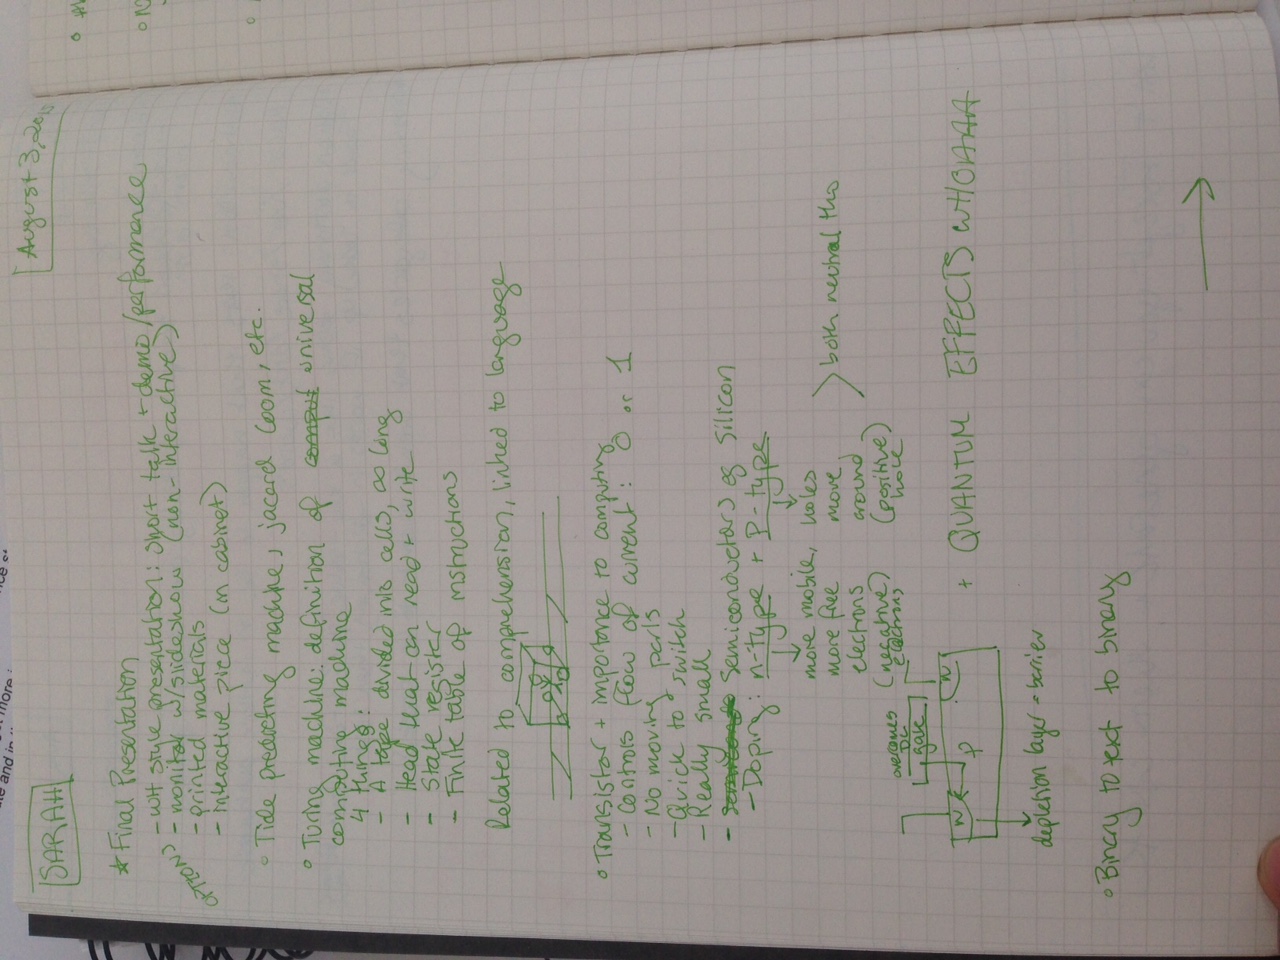 SARAH
August 3, 20
★ Final Presentation
OPTIONS
- WH style presentation: short talk + demo/performance
- monitor w/slideshow (non-interactive)
- printed materials
- interactive piece (in cabinet)
◦ Tide predicting machine, jacard loom, etc.
◦ Turing machine: definition of comput universal
computing machine
4 things:
- A tape divided into cells, ∞ long
- Head that can read + write
- State register
- Finite table of instructions
Related to comprehension, linked to language
◦ Transistor + importance to computing
- Controls flow of current: 0 or 1
- No moving parts
- Quick to switch
- Really small
- Semiconductors eg Silicon
- Doping: n-type + P-type
more mobile, holes
more free move
electrons around
(negative) (positive)
electrons hole
both neutral tho
overcomes
DL
gate
N
N
P
depletion layer = barrier
+ QUANTUM EFFECTS WHOAAAA
◦ Binary to text to binary